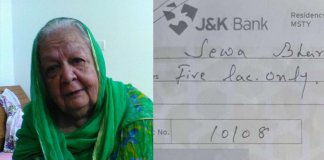 J&K Bank
Residency
MSTY
Sewa Bhar
Five lac. only.
No.
10108